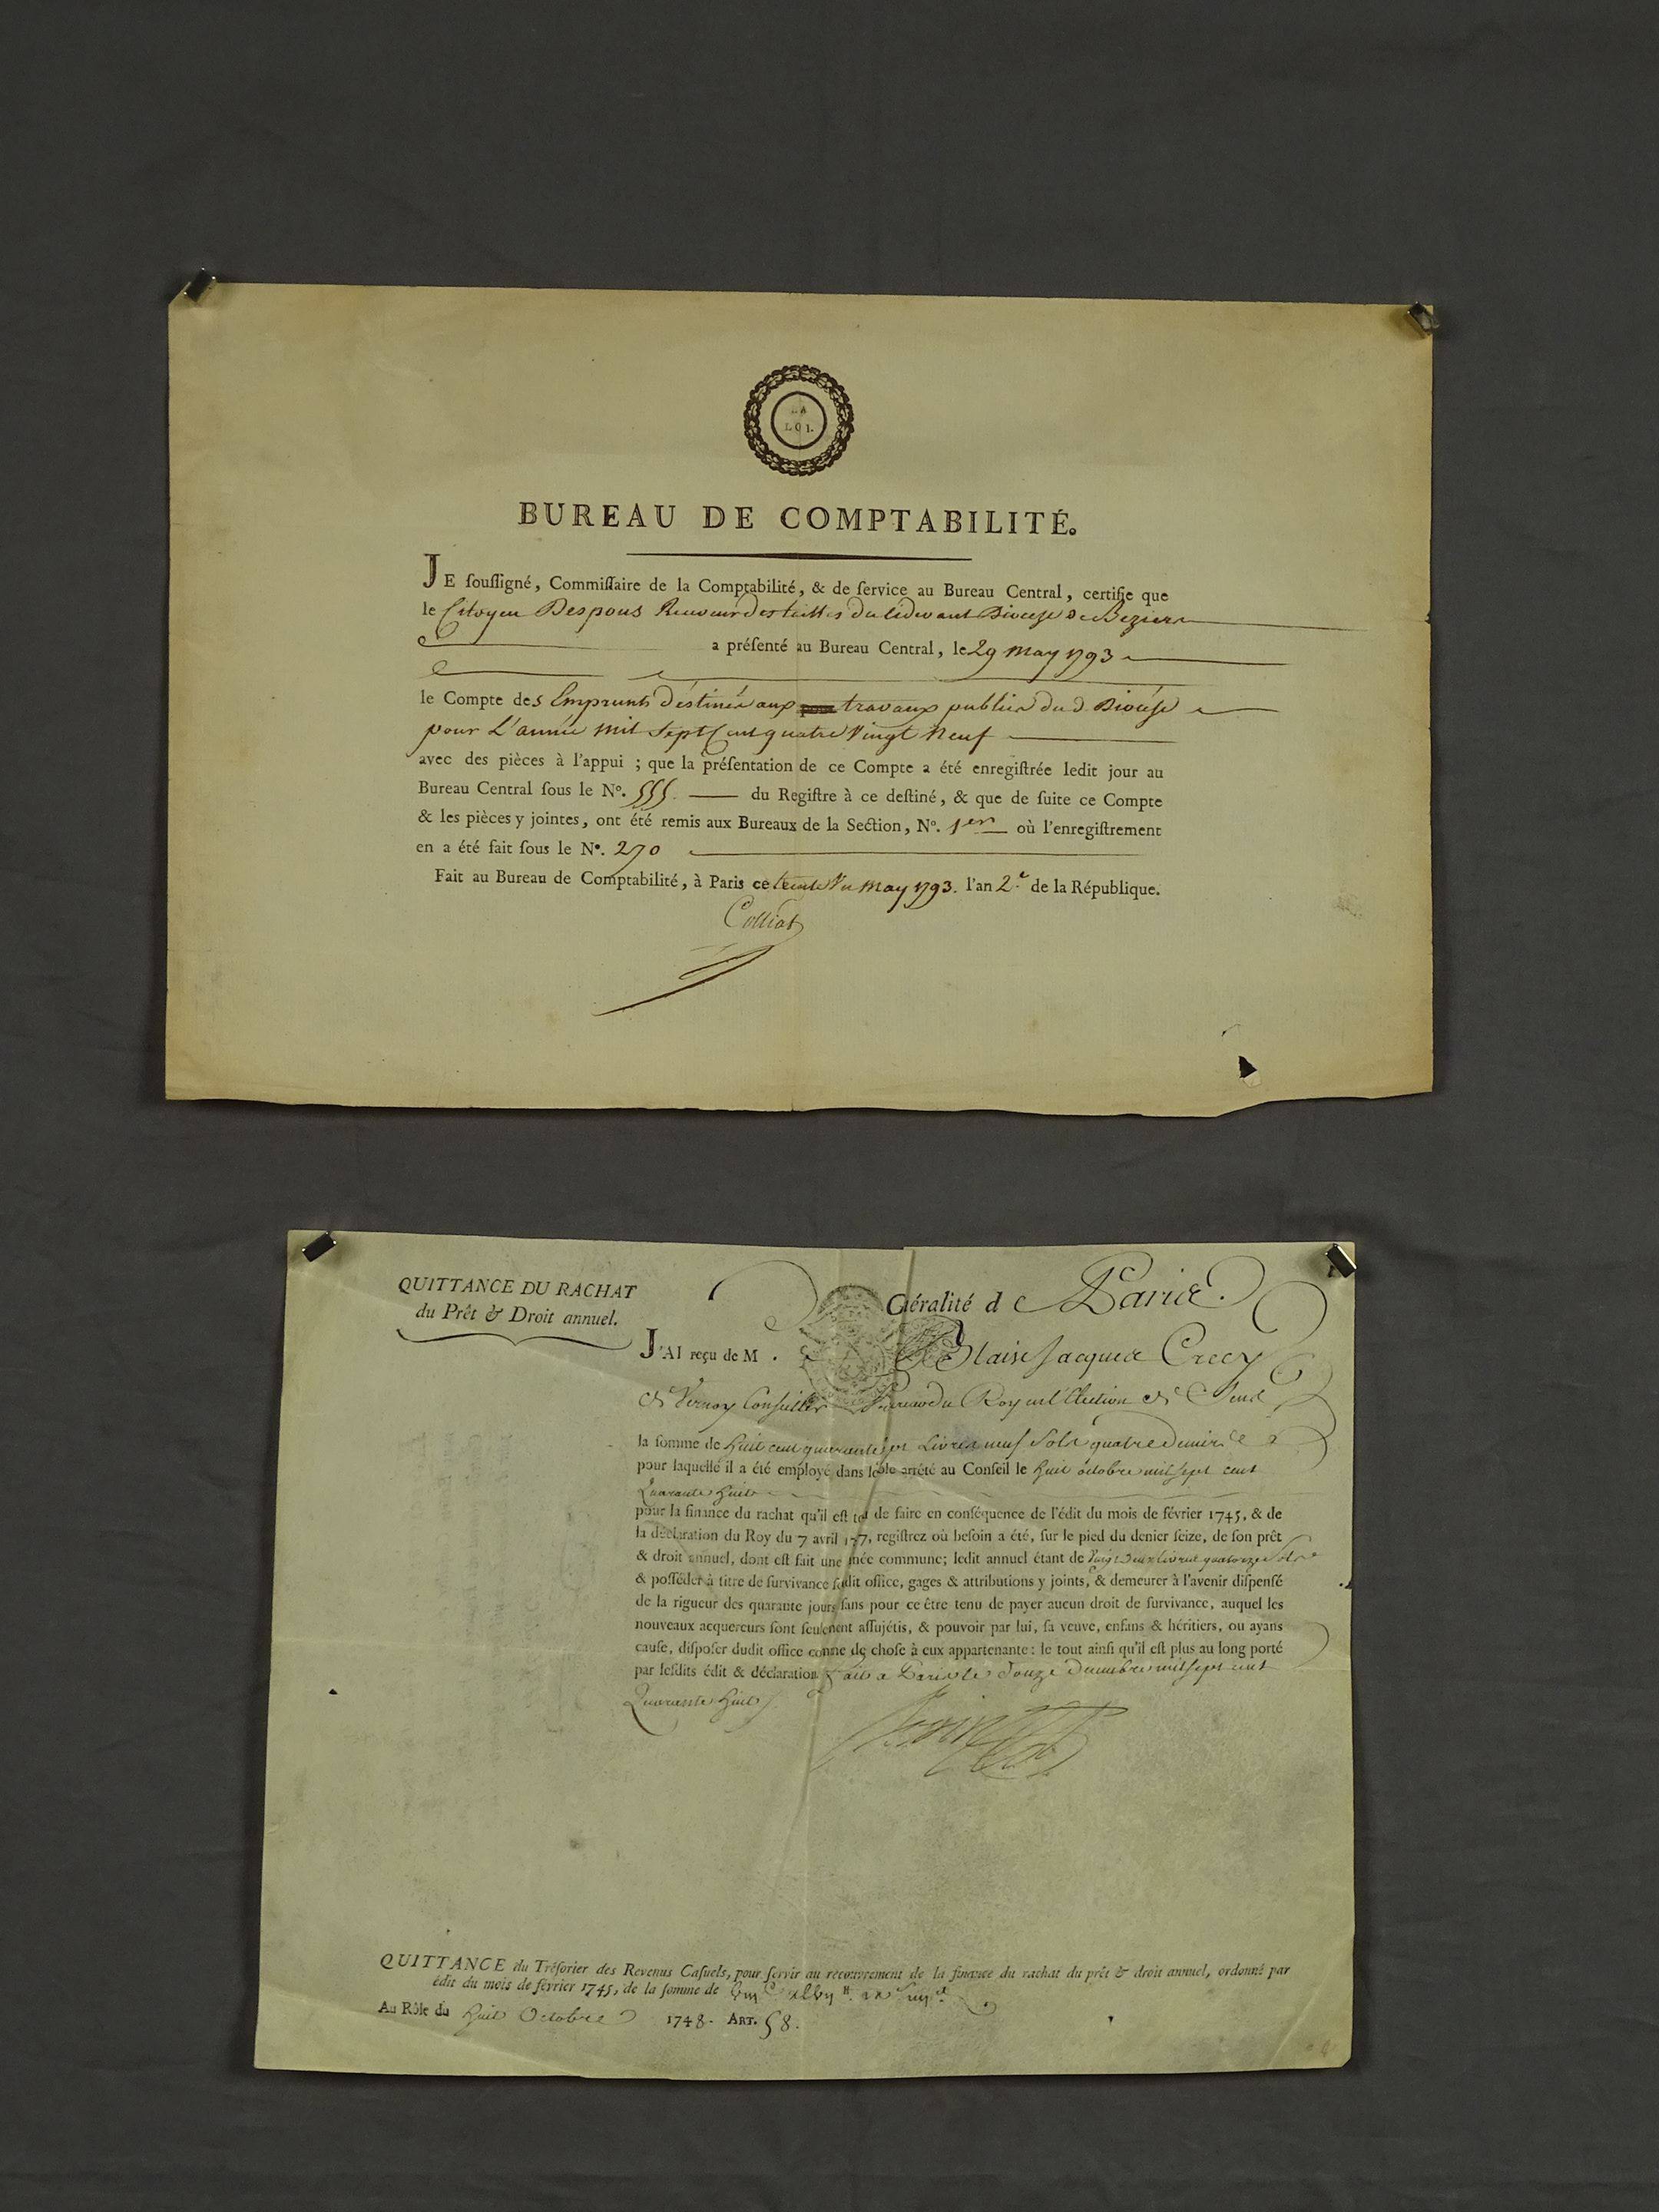 LA
LOI.
BUREAU DE COMPTABILITÉ.
JE ſouſſigné, Commiſſaire de la Comptabilité, & de ſervice au Bureau Central, certifie que
le Citoyen Despous Receveur des tailles du cidevant Diocèse de Beziers
a préſenté au Bureau Central, le 29 May 1793
le Compte des Emprunts déstinés aux travaux publics du d. Diocèse
pour L'année mil Sept Cent quatre Vingt Neuf
avec des pièces à l'appui ; que la préſentation de ce Compte a été enregiſtrée ledit jour au
Bureau Central ſous le Nº. 555. du Regiſtre à ce deſtiné, & que de ſuite ce Compte
& les pièces y jointes, ont été remis aux Bureaux de la Section, Nº. 1er où l'enregiſtrement
en a été fait ſous le Nº. 270
Fait au Bureau de Comptabilité, à Paris ce trente Un May 1793. l'an 2e. de la République.
Colliat
QUITTANCE DU RACHAT
du Prêt & Droit annuel.
Géralité de Paris.
J'AI reçu de M. Blaise Jacques Crecy
de Vernoy Conseiller du Roy en l'Election de Sens
la ſomme de huit cent quarante sept Livres neuf Sols quatre Deniers
pour laquelle il a été employé dans le ôle arrêté au Conſeil le huit octobre mil sept cent
Quarante huit
pour la finance du rachat qu'il eſt te de faire en conſéquence de l'édit du mois de février 1745, & de
la déclaration du Roy du 7 avril 17 7, regiſtrez où beſoin a été, ſur le pied du denier ſeize, de ſon prêt
& droit annuel, dont eſt fait une née commune; ledit annuel étant de Vingt Deux livres quatorze Sols
& poſſéder à titre de ſurvivance ſudit office, gages & attributions y joints, & demeurer à l'avenir diſpenſé
de la rigueur des quarante jours ſans pour ce être tenu de payer aucun droit de ſurvivance, auquel les
nouveaux acquereurs ſont ſeulement aſſujétis, & pouvoir par lui, ſa veuve, enfans & héritiers, ou ayans
cauſe, diſpoſer dudit office comme de choſe à eux appartenante: le tout ainſi qu'il eſt plus au long porté
par leſdits édit & déclaration. Fait a Paris le Douze Decembre mil sept cent
Quarante huit
QUITTANCE du Tréſorier des Revenus Caſuels, pour ſervir au recouvrement de la finance du rachat du prêt & droit annuel, ordonné par
édit du mois de février 1745, de la ſomme de
Au Rôle du huit Octobre 1748. ART. 58.